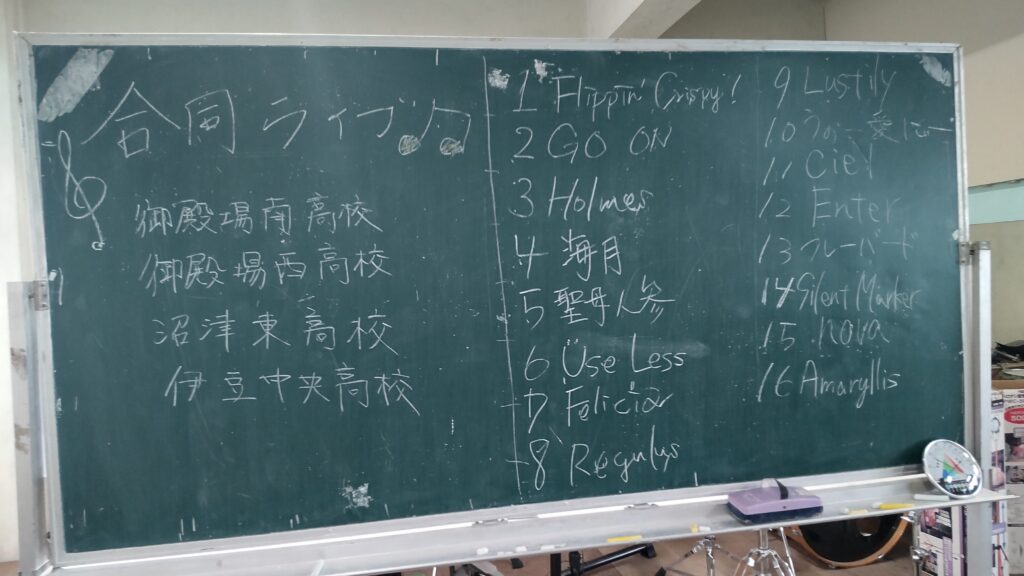 合同ライブ
御殿場南高校
御殿場西高校
沼津東高校
伊豆中央高校
1 Flippin' Crispy!
2 GO ON
3 Holmes
4 海月
5 聖母人参
6 Use Less
7 Felicia
8 Regulus
9 Lustily
10
11 Ciel
12 Enter
13 フレーバード
14 Silent Marker
15 Nova
16 Amaryllis